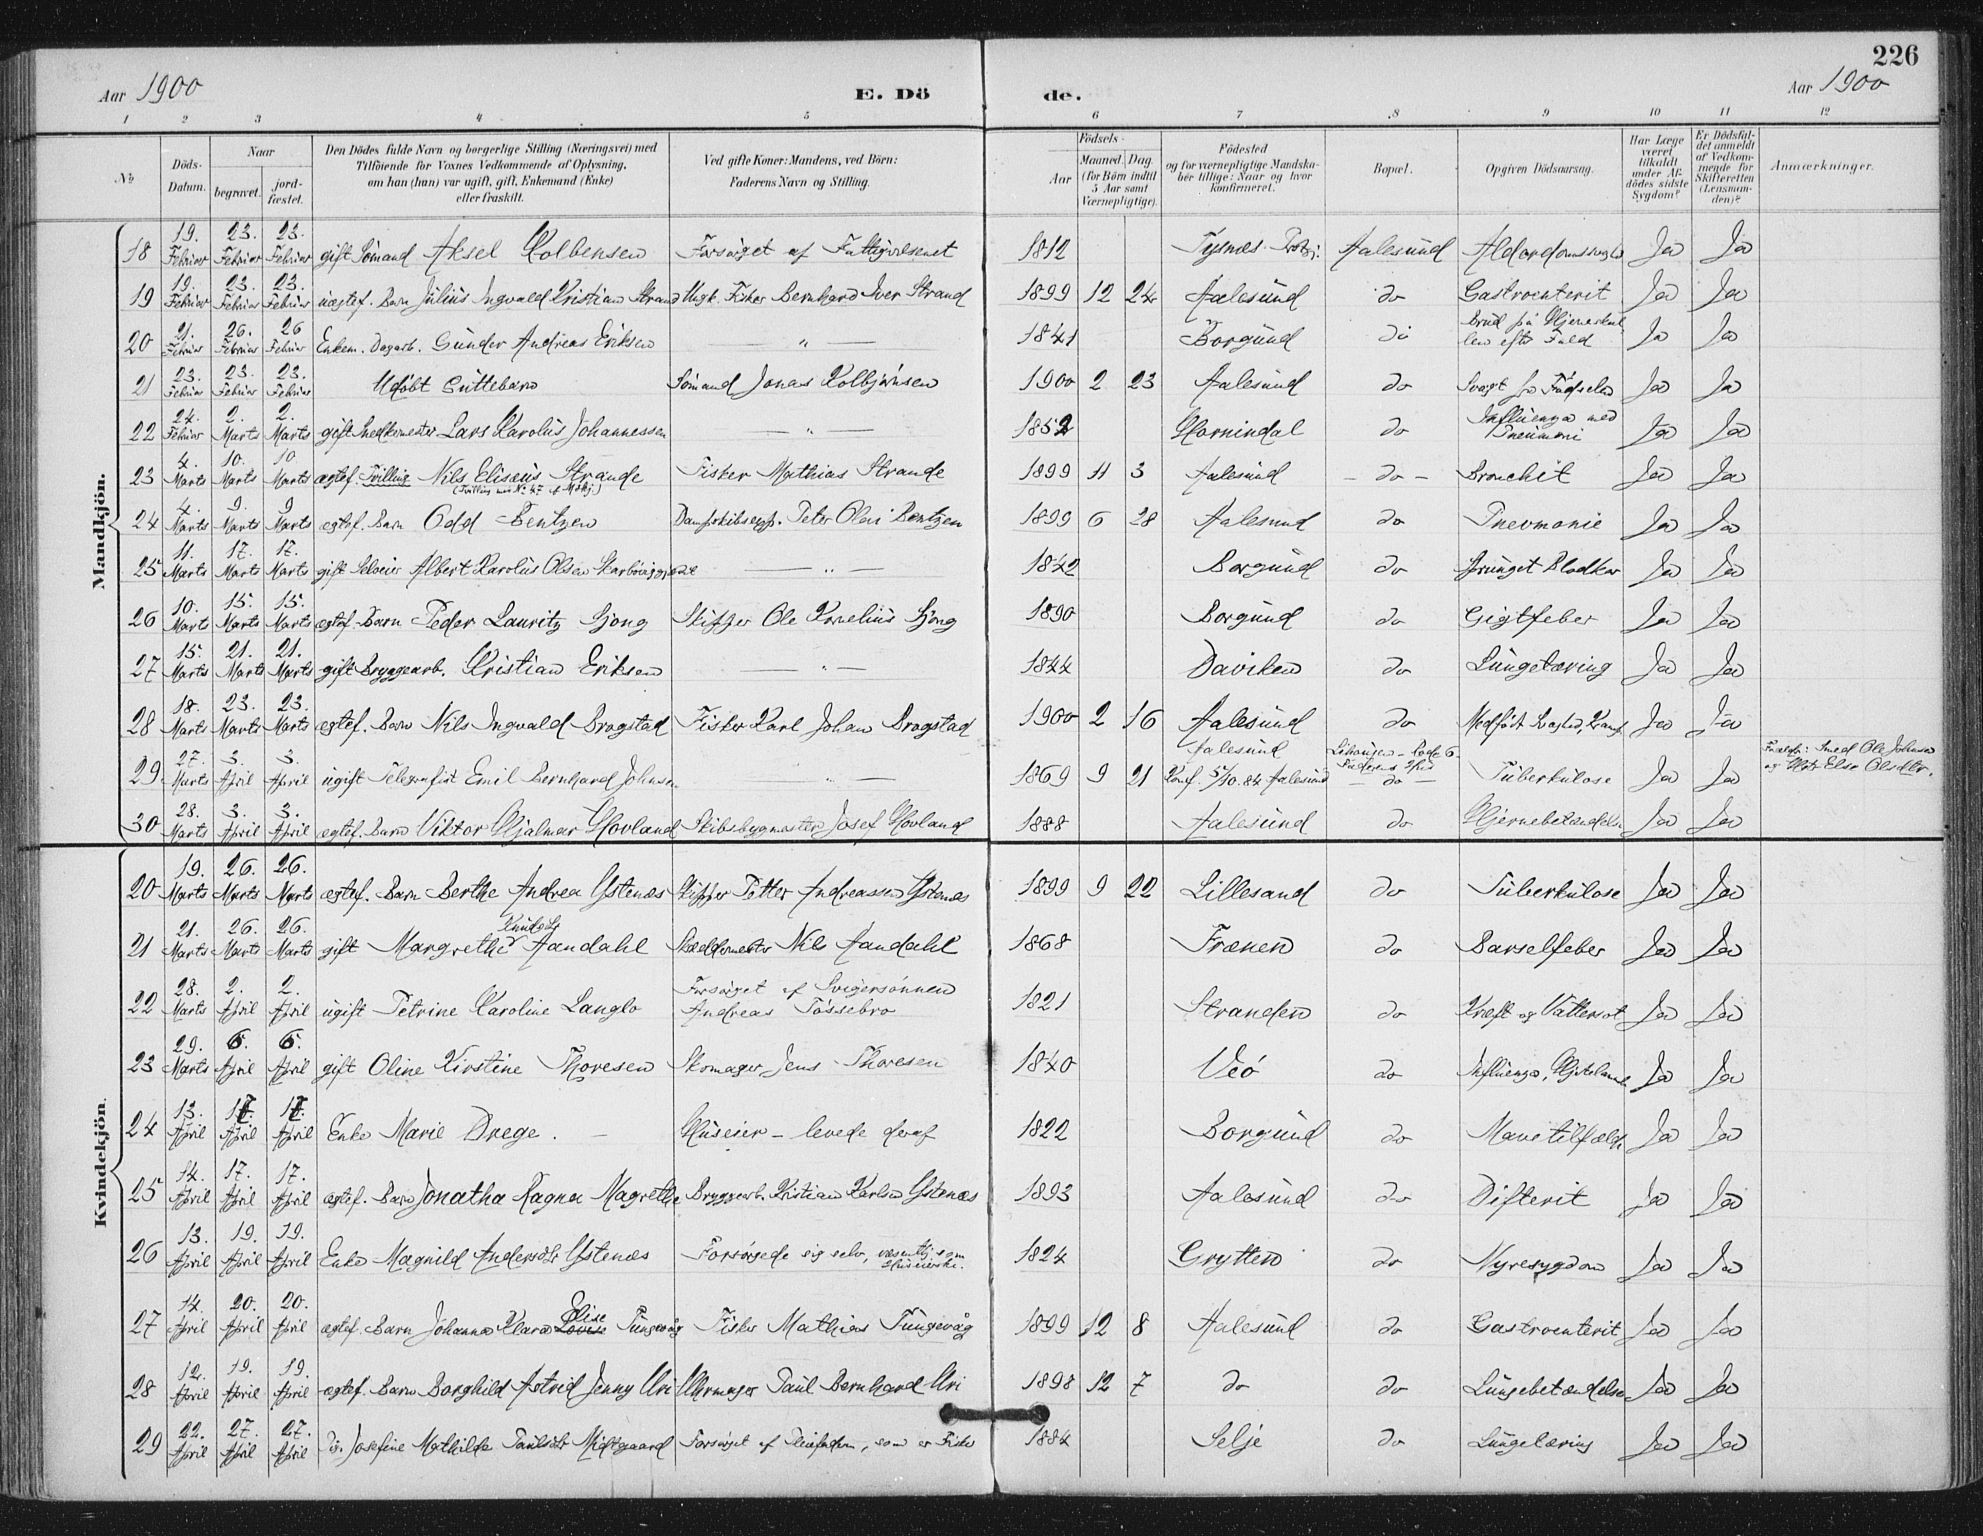 226
Aar 1900
E. Dö
de.
Aar 1900
1 2 3 4 5 6 7 8 9 10 11 12
№
Döds-Datum.
Naar
begravet.
jord-fæstet.
Den Dödes fulde Navn og borgerlige Stilling (Næringsvei) med
Tilföiende for Voxnes Vedkommende af Oplysning,
om han (hun) var ugift, gift, Enkemand (Enke)
eller fraskilt.
Ved gifte Koner: Mandens, ved Börn:
Faderens Navn og Stilling.
Födsels-
Aar
Maaned. Dag.
(for Börn indtil
5 Aar samt
Værnepligtige).
Födested
og for værnepligtige Mandska-
ber tillige: Naar og hvor
konfirmeret.
Bopæl.
Opgiven Dödsaarsag.
Har Læge
været
tilkaldt
under Af-
dödes sidste
Sygdom?
Er Dödsfal-
det anmeldt
af Vedkom-
mende for
Skifteretten
(Lensman-
den)?
Anmærkninger.
Mandkjön.
18 19. Februar 23. Februar 23. Februar gift Sömand Aksel Kolbensen Forsörget af Fattigvæsenet 1812 Tysnæs Aalesund Ja Ja
19 19. Februar 23. Februar 23. Februar uægtef. Barn Julius Ingvald Kristian Strand Ungk. Fisker Bernhard Iver Strand 1899 12 24 Aalesund do Gastroenterit Ja Ja
20 21. Februar 26. Februar 26 Februar Enkem. Dagarb. Gunder Andreas Eriksen — " — 1841 Borgund do Brud på Hjerneskal
len efter Fald Ja Ja
21 23. Februar 23. Februar 23. Februar Udöbt Guttebarn Sömand Jonas Kolbjörnsen 1900 2 23 Aalesund do Svagt fra Födselen Ja Ja
22 24. Februar 2. Marts 2. Marts gift Snedkermester Lars Karolus Johannessen — " — 1852 Hornindal do Influenza med
Pneumoni Ja Ja
23 4. Marts 10. Marts 10 Marts ægtef. Tvilling Nils Elisæus Strande Fisker Mathias Strande 1899 11 3 Aalesund - do - Bronchit Ja Ja
(Tvilling med No 47 af Mdkj.)
24 4. Marts 9. Marts 9 Marts ægtef. Barn Odd Bentzen Dampskibsexp. Peter Olai Bentzen 1899 6 28 Aalesund do Pnevmonie Ja Ja
25 11. Marts 17. Marts 17. Marts gift Selveier Albert Karolus Olsen — " — 1842 Borgund do Sprunget Blodkar Ja Ja
26 10. Marts 15. Marts 15. Marts ægtef. Barn Peder Lauritz Gjong Skipper Ole Kornelius Gjong 1890 Borgund do Gigtfeber Ja Ja
27 15. Marts 21. Marts 21. Marts gift Bryggearb. Kristian Eriksen — " — 1844 Daviken do Lungetæring Ja Ja
28 18. Marts 23. Marts 23. Marts ægtef. Barn Nils Ingvald Bragstad Fisker Karl Johan Bragstad 1900 2 16 Aalesund do Medfödt Svaghed, Kramp. Ja Ja
29 27. Marts 3. April 3. April ugift Telegrafist Emil Bernhard Johnsen — " — 1869 9 21 Aalesund
Konf. 5/10.84 Aalesund - do - Tuberkulose Ja Ja Forældr: Smed Ole Johnsen
og Hstr Else Olsdtr.
30 28. Marts 3. April 3. April ægtef. Barn Viktor Hjalmar Hovland Skibsbygmester Josef Hovland 1888 Aalesund do Hjernebetændelse Ja Ja
Kvindekjön.
20 19. Marts 26. Marts 26. Marts ægtef. Barn Berthe Andrea Ystenæs Skipper Petter Andreassen Ystenæs 1899 9 22 Lillesand do Tuberkulose Ja Ja
21 21. Marts 26. Marts 26. Marts gift Margrethe Knudsdtr Aandahl Nils Aandahl 1868 Frænen do Barselfeber Ja Ja
22 28. Marts 2. April 2. April ugift Petrine Karoline Langlo Forsörget af Svigersönnen
Andreas Tössebro 1821 Stranden do Kræft og Vattersot Ja Ja
23 29. Marts 6. April 6. April gift Oline Kirstine Thoresen Skomager Jens Thoresen 1840 Veö do Influenza, Hjertelam Ja Ja
24 13. April 17. April 17. April Enke Marie Drege. — Huseier - levede deraf 1822 Borgund do Mavetilfælde Ja Ja
25 14. April 17. April 17. April ægtef. Barn Jonatha Ragna Magrethe Bryggearb. Kristian Karlsen Ystenæs 1893 Aalesund do Difterit Ja Ja
26 13. April 19. April 19. April Enke Magnild Andersdtr Ystenæs Forsörgede sig selv, væsentlig som
Huseierske. 1824 Grytten do Nyresygdom Ja Ja
27 14. April 20. April 20. April ægtef. Barn Johanna Klara Lovise Elise Tungevåg Fisker Mathias Tungevåg 1899 12 8 Aalesund do Gastroenterit Ja Ja
28 12. April 19. April 19. April ægtef. Barn Borghild Astrid Jenny Uri Uhrmager Paul Bernhard Uri 1898 12 7 do do Lungebetændelse Ja Ja
29 22. April 27. April 27. April Pig. Josefine Mathilde Paulsdtr Midtgaard Forsörget af Pleiefadren, som er Fisker 1884 Selje do Lungetæring Ja Ja